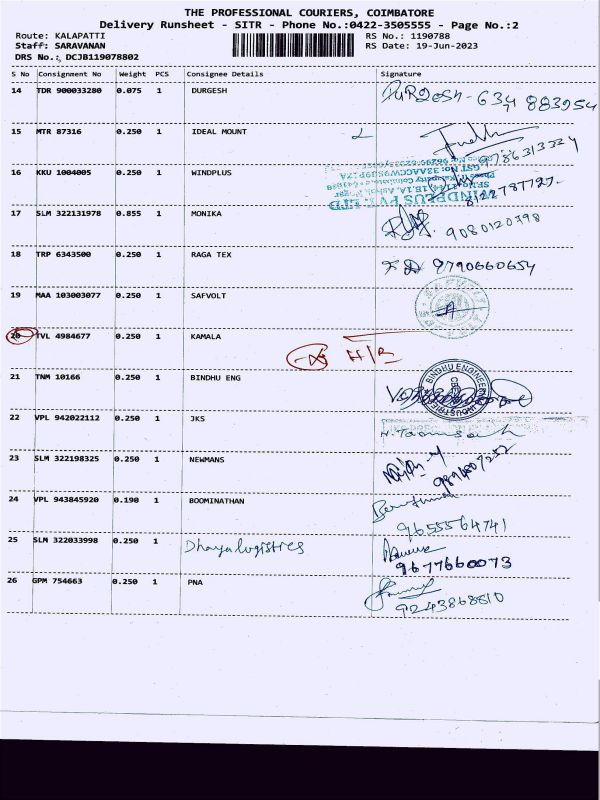 THE PROFESSIONAL COURIERS, COIMBATORE
Delivery Runsheet - SITR - Phone No.:0422-3505555 - Page No.:2
Route: KALAPATTI RS No.: 1190788
Staff: SARAVANAN RS Date: 19-Jun-2023
DRS No.: DCJB119078802
S No Consignment No Weight PCS Consignee Details Signature
14 TDR 900033280 0.075 1 DURGESH DURGESH-
15 MTR 87316 0.250 1 IDEAL MOUNT
16 KKU 1004005 0.250 1 WINDPLUS
WINDPLUS PVT. LTD
17 SLM 322131978 0.855 1 MONIKA 9080120798
18 TRP 6343500 0.250 1 RAGA TEX 8790660654
19 MAA 103003077 0.250 1 SAFVOLT
SAFVOLT
20 TVL 4984677 0.250 1 KAMALA
21 TNM 10166 0.250 1 BINDHU ENG
BINDHU ENGINEER
CBE
22 VPL 942022112 0.250 1 JKS
23 SLM 322198325 0.250 1 NEWMANS
24 VPL 943845920 0.190 1 BOOMINATHAN
9655564741
25 SLM 322033998 0.250 1 Dhaya logistics
9677660073
26 GPM 754663 0.250 1 PNA
9243868810